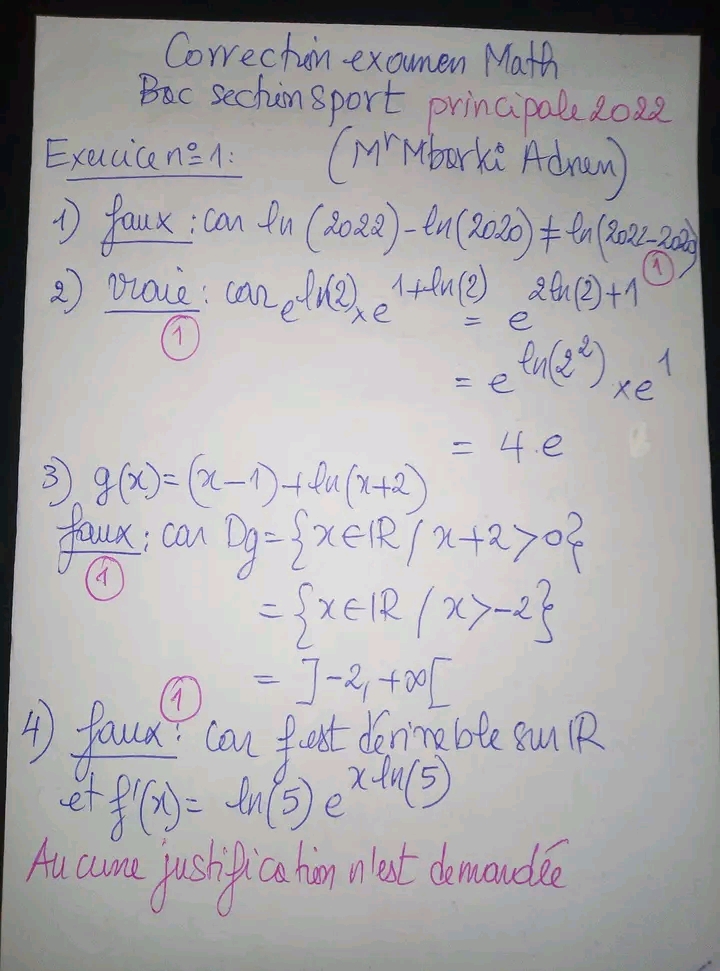 Correction examen Math
Bac section sport principale 2022
Exercice n°1: (Mr Mbarki Adnen)
1) faux : car ln(2022)-ln(2020)≠ln(2022-2020)
1
2) vraie : car e^ln(2) × e^1+ln(2) = e^2ln(2)+1
1
= e^ln(2²) × e^1
= 4.e
3) g(x)=(x-1)+ln(x+2)
faux : car Dg={x∈IR / x+2>0}
1
={x∈IR / x>-2}
= ]-2,+∞[
1
4) faux : car f est dérivable sur IR
et f'(x)= ln(5) e^xln(5)
Aucune justification n'est demandée